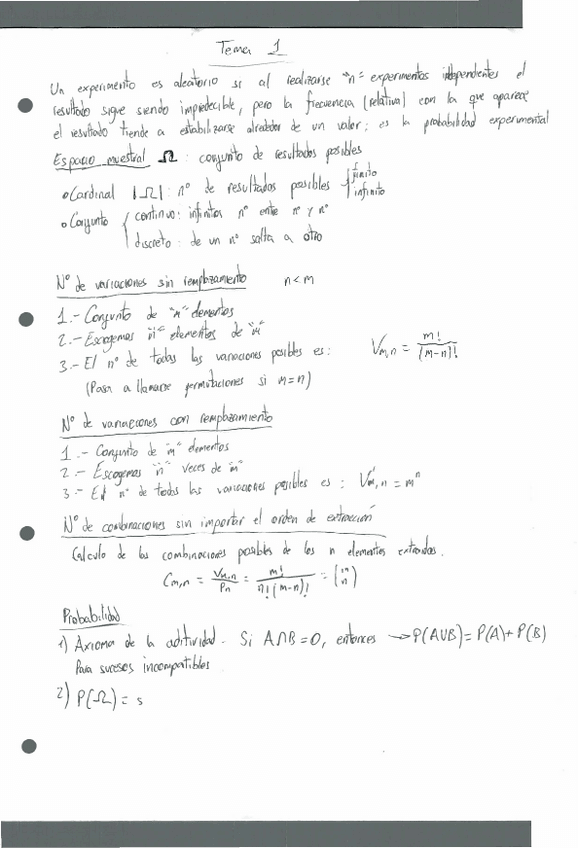 Tema 1
Un experimento es aleatorio si al realizarse "n" experimentos independientes el
resultado sigue siendo impredecible, pero la frecuencia (relativa) con la que aparece
el resultado tiende a estabilizarse alrededor de un valor; es la probabilidad experimental
Espacio muestral Ω : conjunto de resultados posibles
• Cardinal |Ω| : nº de resultados posibles { finito
infinito
• Conjunto { continuo: infinitos nº entre nº y nº
discreto: de un nº salta a otro
Nº de variaciones sin remplazamiento n<m
1.- Conjunto de "m" elementos
2.- Escogemos "n" elementos de "m"
3.- El nº de todas las variaciones posibles es: Vm,n = m!/(m-n)!
(Pasa a llamarse permutaciones si m=n)
Nº de variaciones con remplazamiento
1.- Conjunto de "m" elementos
2.- Escogemos "n" veces de "m"
3.- El nº de todas las variaciones posibles es : V'm,n = mⁿ
Nº de combinaciones sin importar el orden de extracción
Calculo de las combinaciones posibles de los n elementos extraidos.
Cm,n = Vm,n/Pn = m!/n!(m-n)! = (m n)
Probabilidad
1) Axioma de la aditividad. Si A∩B=0, entonces → P(A∪B)=P(A)+P(B)
Para sucesos incompatibles
2) P(Ω) = s